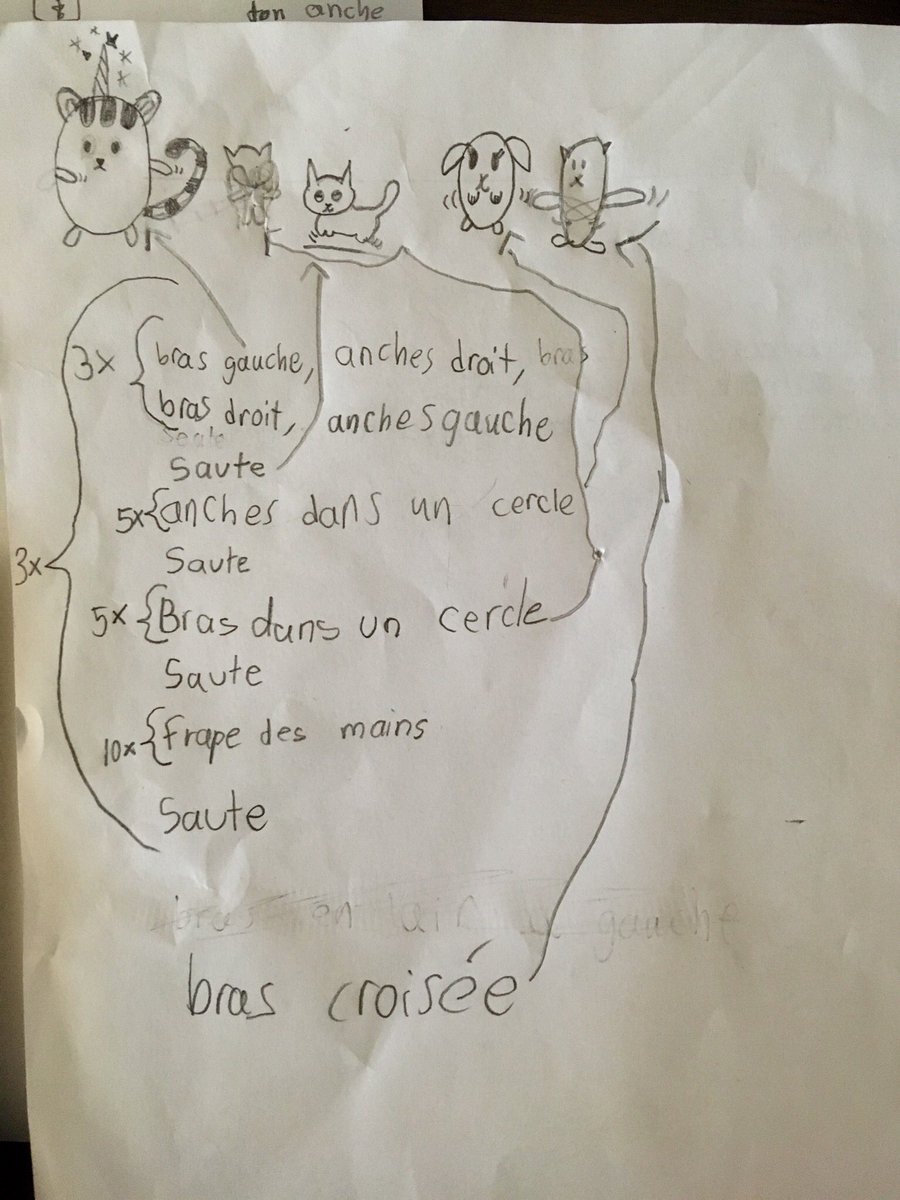 ton anche
3x { bras gauche, anches droit, bras
bras droit, anches gauche
Saute
5x { anches dans un cercle
Saute
3x
5x { Bras dans un cercle
Saute
10x { frape des mains
Saute
bras en lair gauche
bras croisée